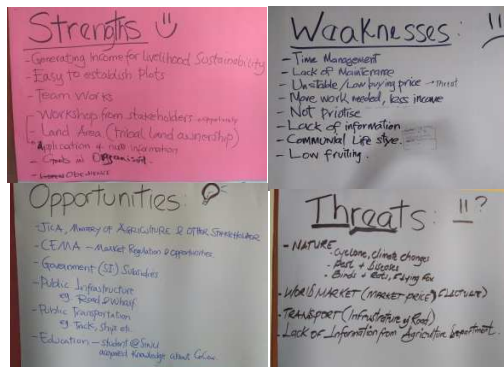 Strengths
- Generating Income for livelihood Sustainability
- Easy to establish Plots
- Team Works
- Workshop from stakeholders
- Land Area (tribal land ownership)
- Application of new information
Organised.
Weaknesses:
- Time Management
- Lack of Maintenance
- Unstable/Low buying price → threat
- More work needed, less income
- Not Priotise
- Lack of information
- Communal Life style.
- Low fruiting.
Opportunities:
- JICA, Ministry of Agriculture & other Stakeholder
- CEMA - Market Regulation & opportunities
- Government (SI) Subsidies
- Public Infrastructure
eg. Road & Wharf.
- Public Transportation
eg Truck, Ships etc.
- Education - student @ SINU
acquired Knowledge about Cocoa.
Threats: !! ?
- NATURE
- Cyclone, climate changes
- Pest & Diseases
- Birds & Rats, Flying Fox
- WORLD MARKET (MARKET PRICE) FLUCTURE)
- TRANSPORT (Infrastructure of Road)
- Lack of Information from Agriculture Department.